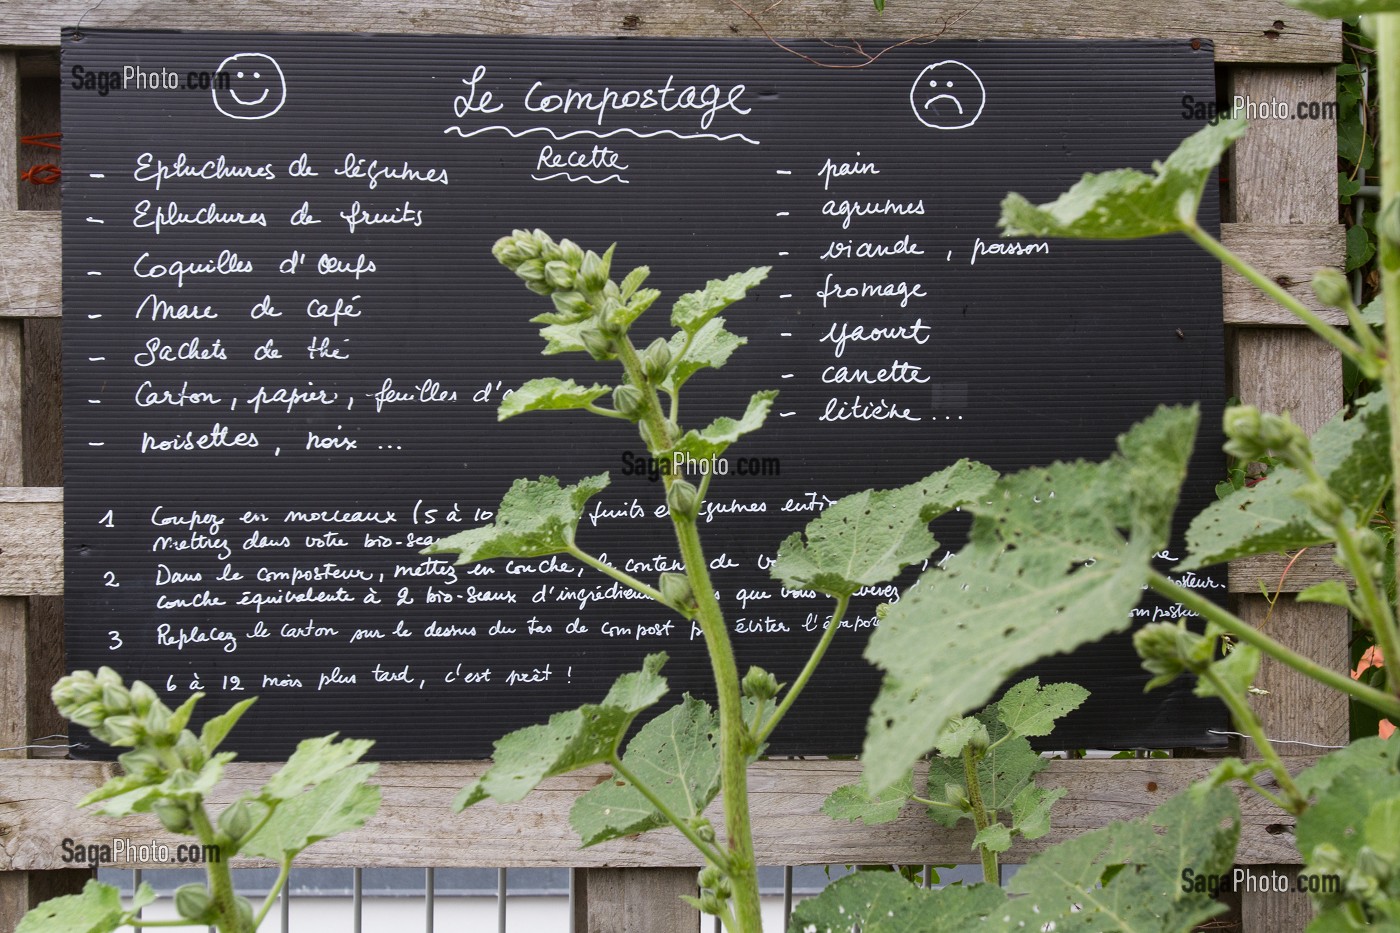 Le compostage
Recette
- Epluchures de légumes
- Epluchures de fruits
- Coquilles d'Oeufs
- Marc de café
- Sachets de thé
- Carton, papier, feuilles
- noisettes, noix ...
- pain
- agrumes
- viande, poisson
- fromage
- yaourt
- canette
- litière ...
1 Coupez en morceaux (5 à 10 fruits légumes
Mettez dans votre bio-seau
2 Dans le composteur, mettez en couche, le contenu de
couche équivalente à 2 bio-seaux que vous
3 Replacez le carton sur le dessus du tas de compost éviter
6 à 12 mois plus tard, c'est prêt !
SagaPhoto.com
SagaPhoto.com
SagaPhoto.com
SagaPhoto.com
SagaPhoto.com